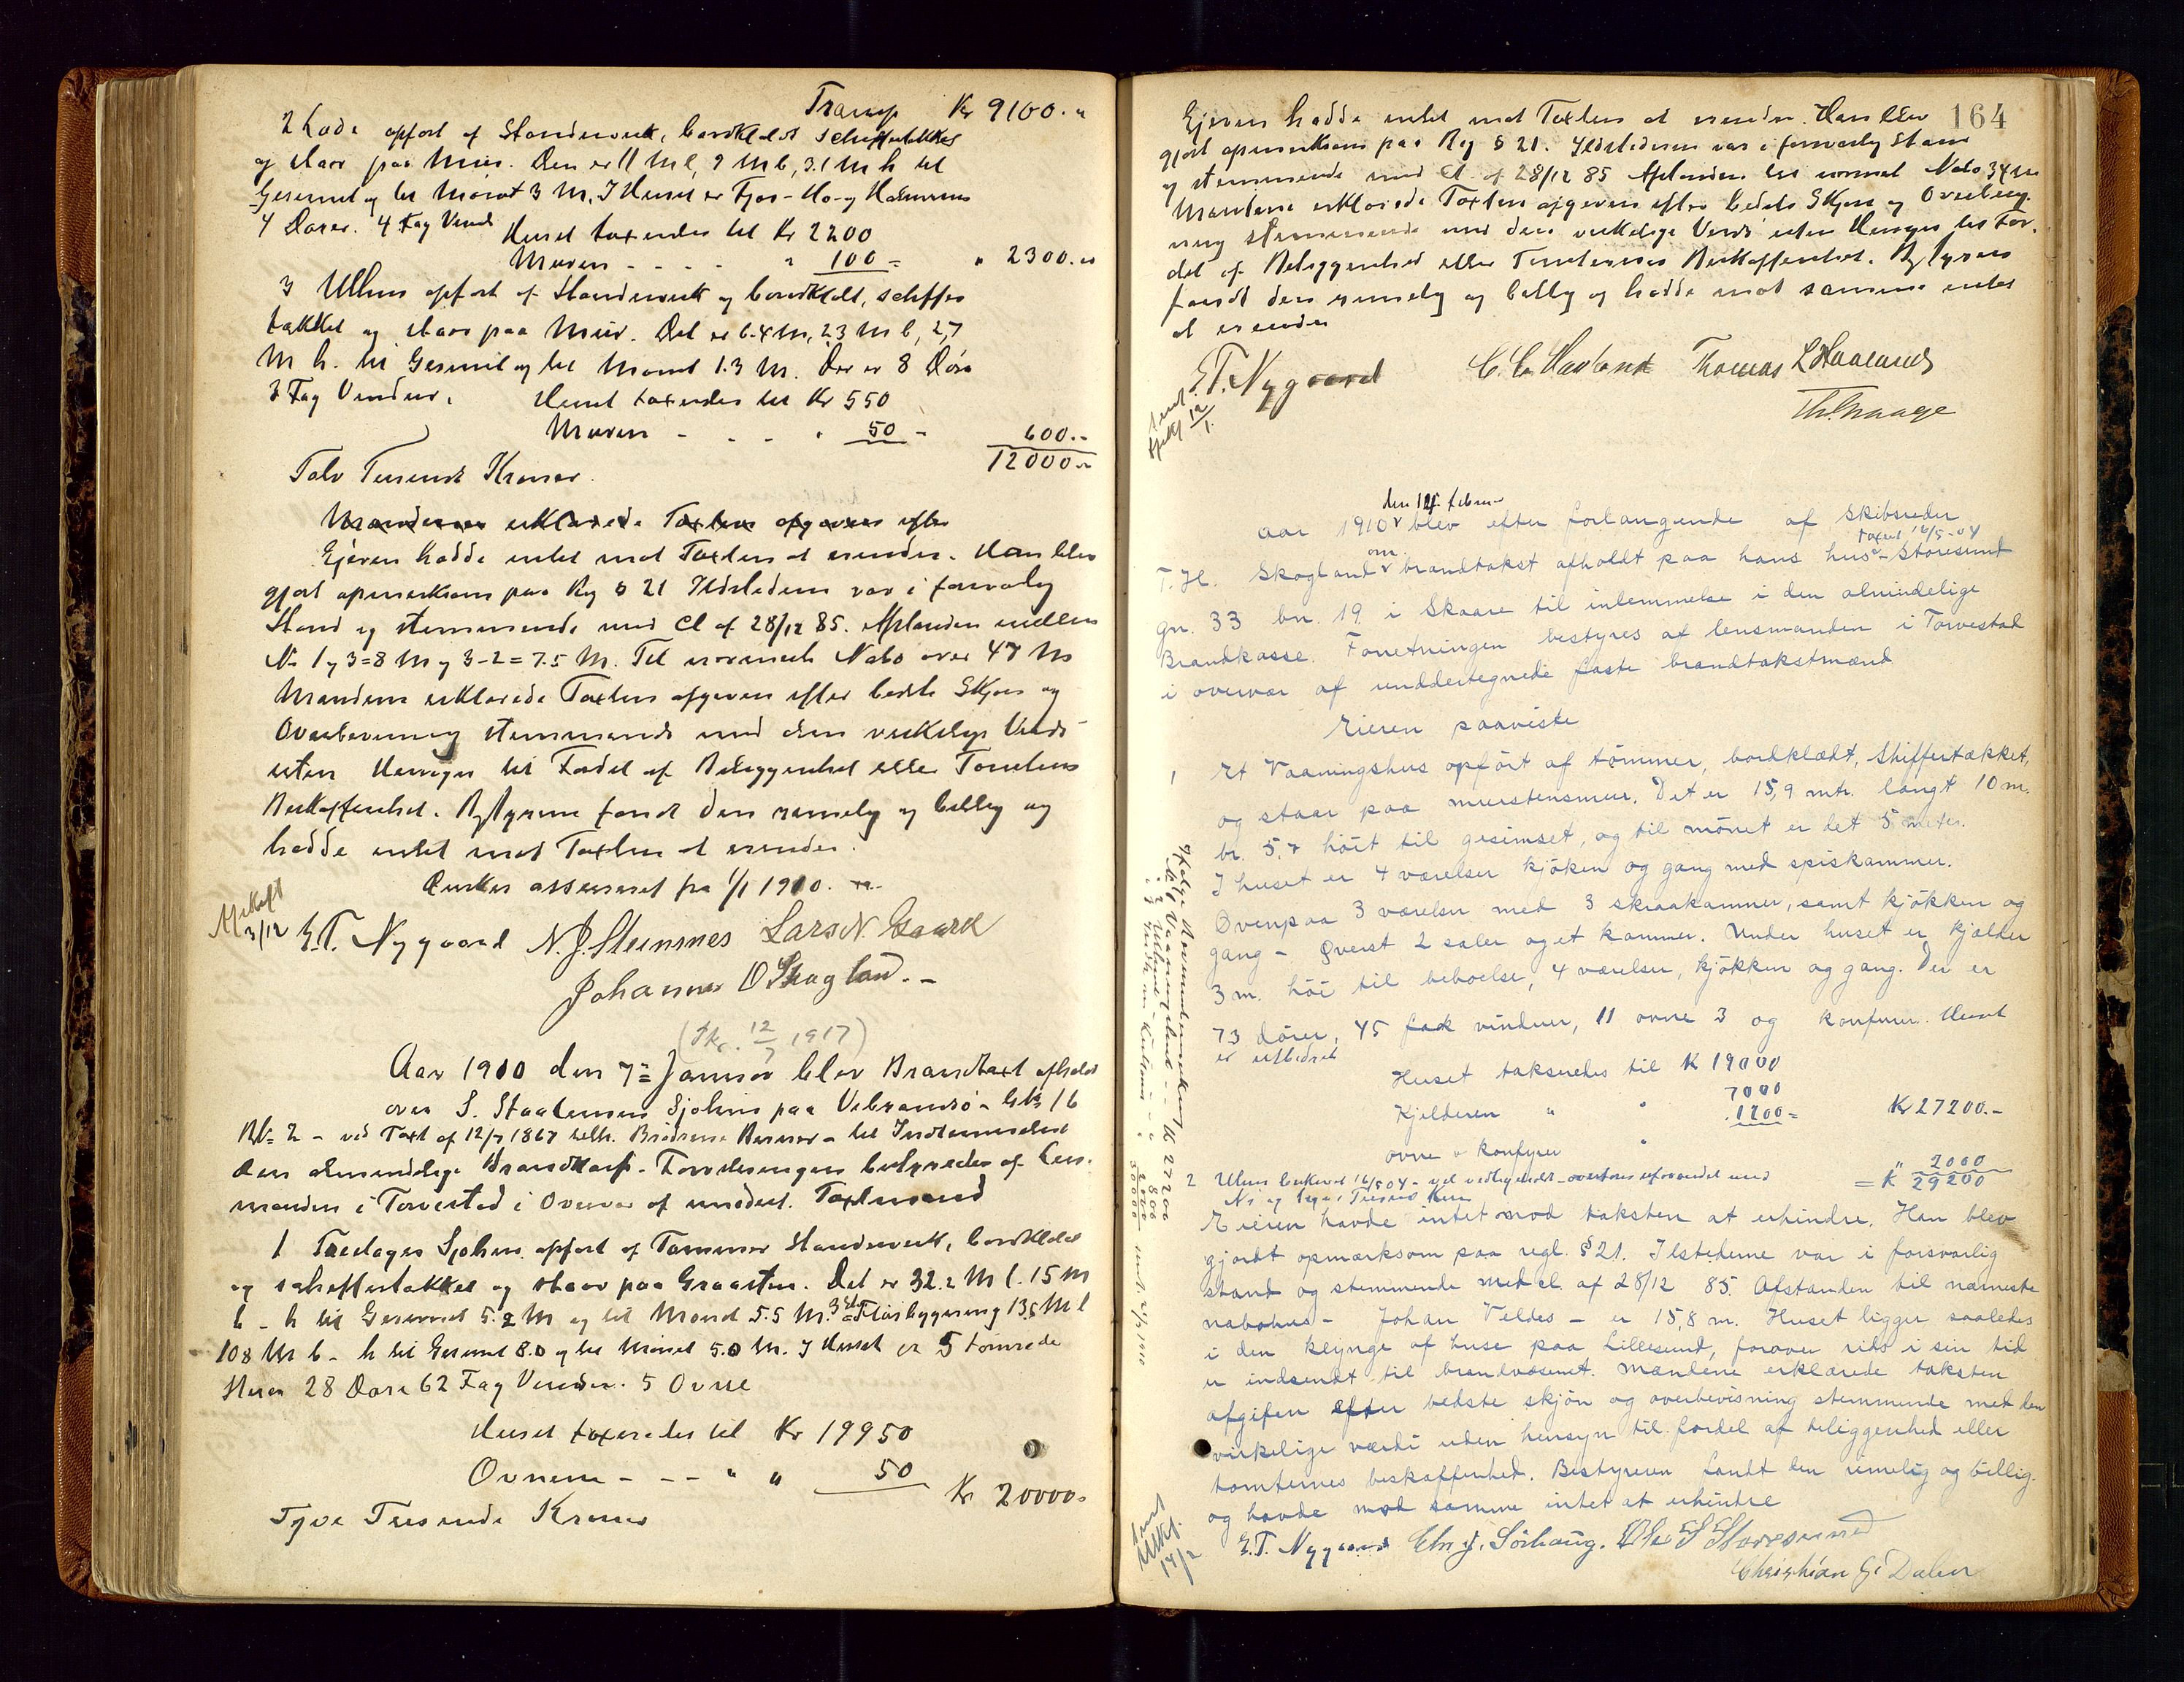 Transp Kr 9100. "
2 Lade opfort af Standerverk, bordklædt schiffertækket
og staar paa Muur. Den er 11 M l, 9 M b, 3.1 M h til
Gesimset og til Mønet 3 M. I Huset er Fjos - Ho- og
4 Dører. 4 Fag Vind
Huset taxerdes til Kr 2200
Muren - - - - " 100 = " 2300. "
3 Uthus opfort af Standerverk og bordklædt, schiffer
tækket og staar paa Muur. Det er 6.4 M, 2,3 M b, 2,7
M h. til Gesimset og til Mønet 1.3 M. Der er 8 Døre
3 Fag Vinduer. Huset taxerdes til Kr 550
Muren - - - " 50 - 600. -
12000. -
Tolv Tusende Kroner.
Mændenes erklærede Taxten afgiven efter
Ejeren hadde intet mod Taxten at erindre. Han blev
gjort opmerksom paa Rg § 21 Ildstederne var i forsvarlig
Stand og stemmende med Cl af 28/12 85. Afstanden mellem
No 1 og 3 = 8 M og 3-2 = 7.5 M. Til nærmeste Nabo over 47 M
Mændene erklærede Taxten afgiven efter bedste Skjøn og
Overbevisning stemmende med den virkelige Værdi
uten Hensyn til Fordel af Beliggenhed eller Tomtens
Beskaffenhed. Bestyreren fandt den rimelig og billig og
hadde intet mod Taxten at erindre.
Ønskes assureret fra 1/1 1910.
Afskrift
3/12
E.T. Nygaard N. J. Steinsnes Lars N. Gaard
Johannes O Skogland. -
(Sk. 12/7 1917)
Aar 1910 den 7= Januar blev Brandtaxt afholdt
over S. Staalesens Sjøhus paa Vibrandsø - Gb 16
BN= 2 - ved Taxt af 12/7 1867 Brødrene - til Indlemmelse
den almindelige Brandkasse. Forretningen bestyredes af Lens-
manden i Torvestad i Overvær af undert. Taxtmænd
1 Toetages Sjøhus opfort af Tømmer Standerverk, bordklædt
og schiffertækket og staar paa Graasten. Det er 32.2 M l. 15 M
b - h til Gesimset 5.2 M og til Mønet 5.5 M. Tilbyggning 13.5 M l
10.8 M b - h til Gesimset 8.0 og til Mønet 5.0 M. I Huset er 5 tømrede
28 Døre 62 Fag Vinduer. 5 Ovne
Huset taxerdes til Kr 19950
Ovnene - - - " " 50
Kr 20000 =
Tyve Tusende Kroner
164
Ejeren hadde intet mod Taxten at erindre. Han blev
gjort opmerksom paa Rg § 21. Ildstederne var i forsvarlig Stand
og stemmende med Cl. af 28/12 85 Afstanden til nærmeste Nabo 34 M
Mændene erklærede Taxten afgiven efter bedste Skjøn og Overbevis-
ning stemmende med den virkelige Værdi uten Hensyn til For-
del af Beliggenhed eller Tomternes Beskaffenhed. Bestyreren
fandt den rimelig og billig og hadde mod samme intet
at erindre
E.T. Nygaard C. C. Havland Thomas L Haaland
12/1.
den 14. februar
aar 1910 blev efter forlangende af Skibsreder
om taxert 16/5-04
T. H. Skogland brandtakst afholdt paa hans hus - Storesund
gn. 33 bn. 19 i Skaare til inlemmelse i den almindelige
Brandkasse. Forretningen bestyres af lensmanden i Torvestad
i overvær af unddertegnede faste brandtakstmænd
Eieren paaviste
1 Et Vaaningshus opført af tømmer, bordklædt, skiffertækket,
og staar paa murstensmur. Det er 15,9 mtr. langt 10 m.
br. 5,7 høit til gesimset, og til mønet er det 5 meter.
I huset er 4 værelser kjøken og gang med spiskammer.
Ovenpaa 3 værelser med 3 skraakammer, samt kjøkken og
gang - Øverst 2 saler og et kammer. Under huset er kjælder
3 m. høi til beboelse, 4 værelser, kjøkken og gang. Der er
73 dører, 45 fack vinduer, 11 ovne 3 og konfurer. Huset
er utbedret
Huset takseredes til K 19000
Kjelderen " " 7000
ovne & konfyrer " 1200 = Kr 27200. -
2 Uthus beskrevet 16/5 04 - vel vedligeholdt - " 2000
= K 29200
Eieren havde intet mod taksten at erhindre. Han blev
gjordt opmærksom paa regl. § 21. Ilstederne var i forsvarlig
stand og stemmende med cl. af 28/12 85. Afstanden til nærmeste
nabohus - Johan Veldes - er 15,8 m. Huset ligger saaledes
i den klynge af huse paa Lillesund, forover rids i sin tid
er indsendt til brandvæsenet. Mændene erklærede taksten
afgifen efter bedste skjøn og overbevisning stemmende med den
virkelige værdi uden hensyn til fordel af beliggenhed eller
tomternes beskaffenhed. Bestyreren fandt den rimelig og billig
og havde mod samme intet at erhindre
14/2
E.T. Nygaard Chr. J. Sørhaug. Ole S Storesund
Christian G. Dalen